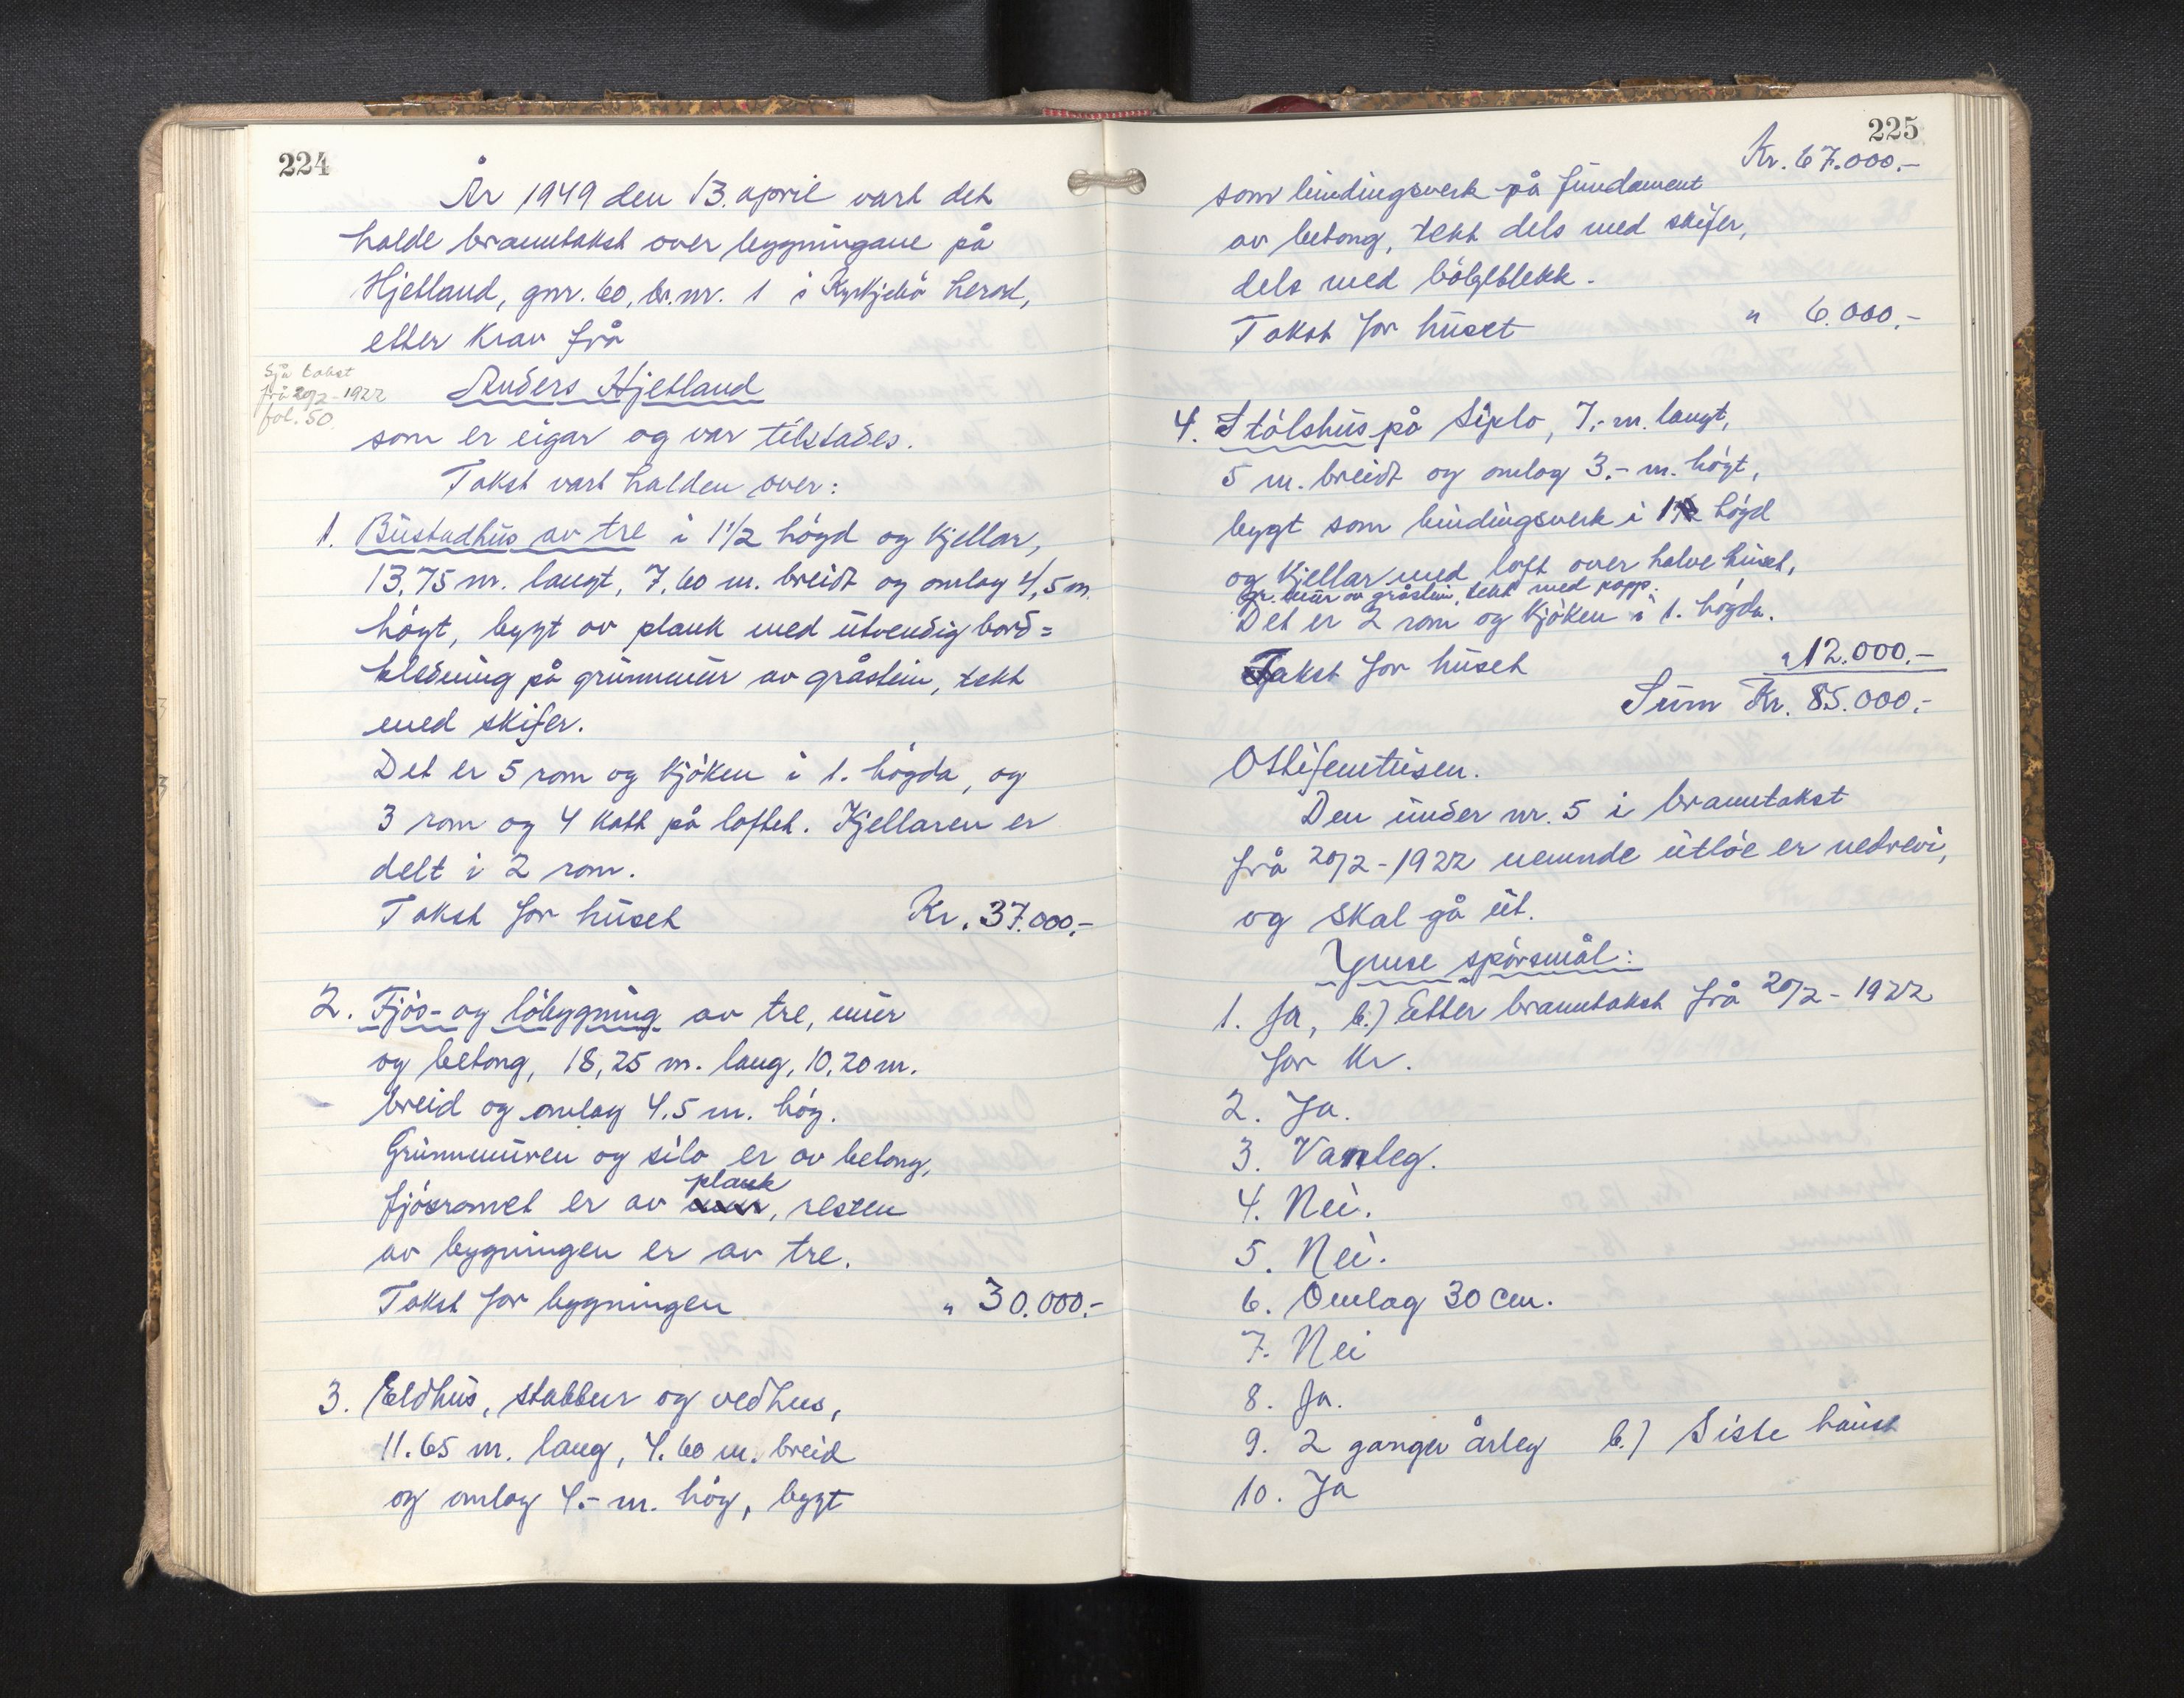 224
År 1949 den 13. april vart det
halde branntakst over bygningane på
Hjetland, gnr. 60, br.nr. 1 i Kyrkjebö herad,
etter krav frå
Sjå takst
frå 20/2-1922
fol. 50.
Anders Hjetland
som er eigar og var tilstades.
Takst vart halden over:
1. Bustadhus av tre i 1 1/2 högd og kjellar,
13,75 m. langt, 7,60 m. breidt og omlag 4,5 m.
högt, bygt av plank med utvendig bord=
kledning på grunnmur av gråstein, tekt
med skifer.
Det er 5 rom og kjöken i 1. högda, og
3 rom og 4 kott på loftet. Kjellaren er
delt i 2 rom.
Takst for huset Kr. 37.000.-
2. Fjös- og löbygning av tre, mur
og betong, 18,25 m. lang, 10,20 m.
breid og omlag 4.5 m. hög.
Grunnmuren og silo er av betong,
plank
fjösromet er av mur, resten
av bygningen er av tre.
Takst for bygningen " 30.000.-
3. Eldhus, stabbur og vedhus,
11.65 m. lang, 4.60 m. breid
og omlag 4.- m. hög, bygt
225
Kr. 67.000.-
som bindingsverk på fundament
av betong, tekt dels med skifer,
dels med bölgeblekk.
Takst for huset " 6.000.-
4. Stölshus på Siplo, 7,- m. langt,
5 m. breidt og omlag 3.- m. högt,
bygt som bindingsverk i 1 högd
og kjellar med loft over halve huset,
gr. mur av gråstein, tekt med papp.
Det er 2 rom og kjöken i 1. högda.
Takst for huset " 12.000.-
Sum Kr. 85.000.-
Den under nr. 5 i branntakst
frå 20/2-1922 nemnde utlöe er nedrevi,
og skal gå ut.
Ymse spörsmål:
1. Ja, b.) Etter branntakst frå 20/2-1922
for kr.
2. Ja.
3. Vanleg.
4. Nei.
5. Nei.
6. Omlag 30 cm.
7. Nei
8. Ja.
9. 2 ganger årleg b.) Siste haust
10. Ja